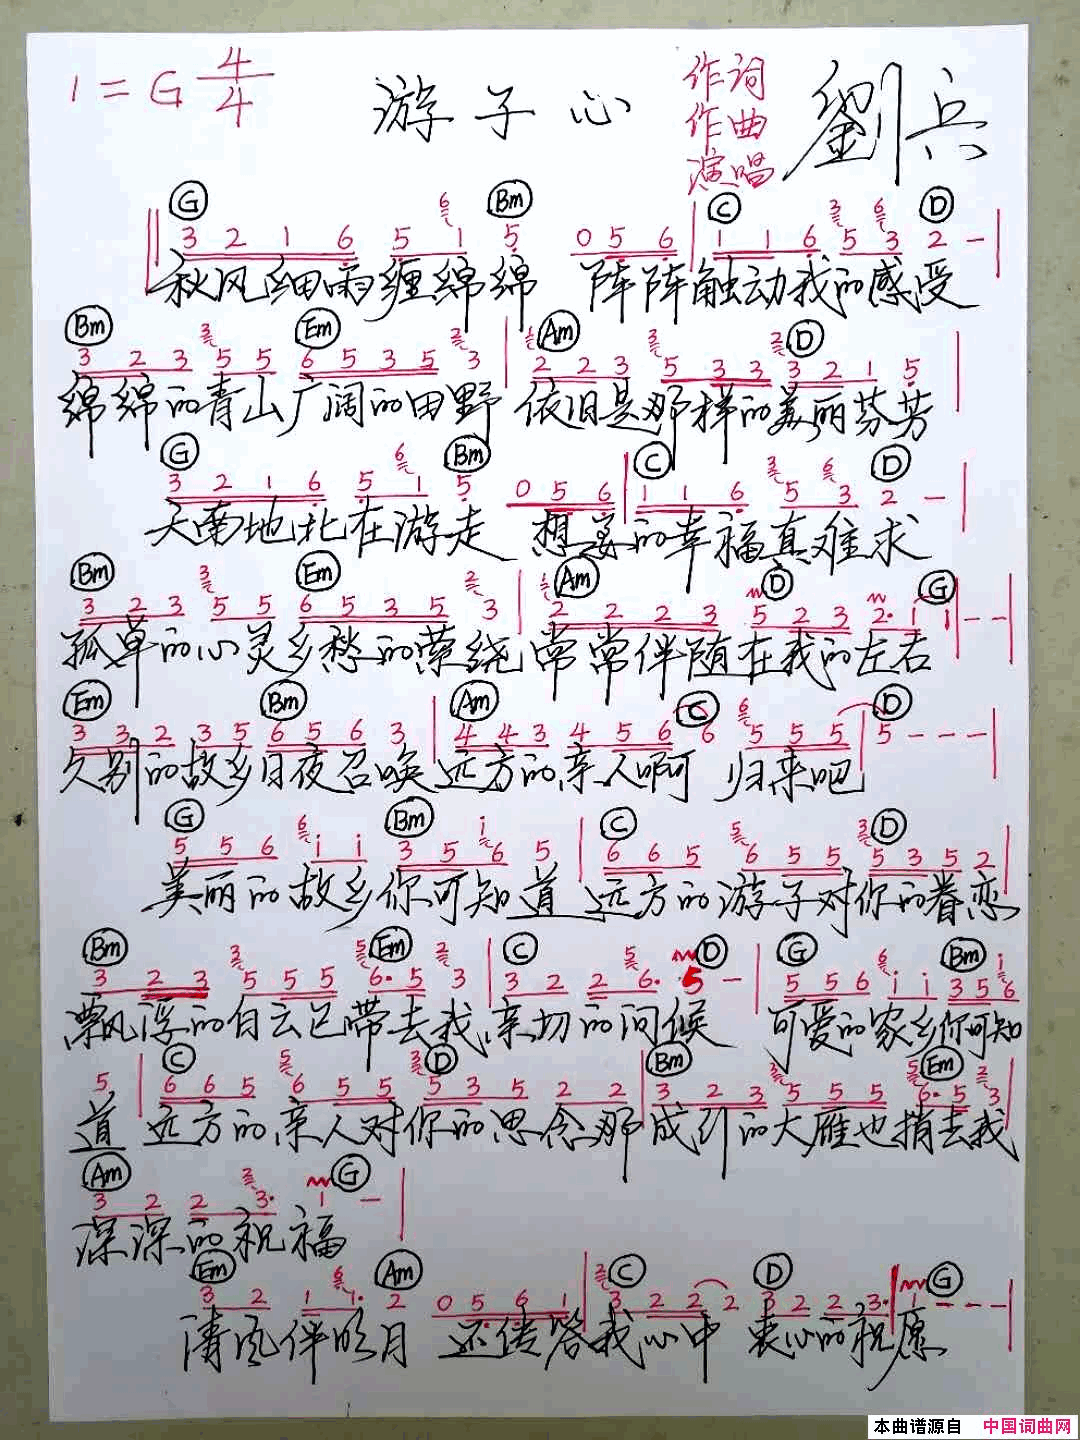 1=G 4/4 游子心 作词 作曲 演唱 劉兵
G Bm C D
3 2 1 6 5 1 5 0 5 6 1 1 6 5 3 2 -
秋风细雨缠绵绵 阵阵触动我的感受
Bm Em Am D
3 2 3 5 5 6 5 3 5 3 2 2 3 5 3 3 3 2 1 5
绵绵的青山广阔的田野 依旧是那样的美丽芬芳
G Bm C D
3 2 1 6 5 1 5 0 5 6 1 1 6 5 3 2 -
天南地北在游走 想要的幸福真难求
Bm Em Am D G
3 2 3 5 5 6 5 3 5 3 2 2 2 3 5 2 3 2· 1 1 - -
孤单的心灵乡愁的萦绕 常常伴随在我的左右
Em Bm Am C D
3 3 2 3 5 6 5 6 3 4 4 3 4 5 6 6 5 5 5 5 - - -
久别的故乡日夜召唤 远方的亲人啊 归来吧
G Bm C D
5 5 6 i i 3 5 6 5 6 6 5 6 5 5 5 3 5 2
美丽的故乡你可知道 远方的游子对你的眷恋
Bm Em C D G Bm
3 2 3 5 5 5 6· 5 3 3 2 2 6· 5 - 5 5 6 i i 3 5 6
飘浮的白云已带去我亲切的问候 可爱的家乡你可知
C D Bm Em
5 6 6 5 6 5 5 5 3 5 2 2 3 2 3 5 5 5 6· 5 3
道 远方的亲人对你的思念那成引的大雁也捎去我
Am G
3 2 2 3· 1 -
深深的祝福
Em Am C D G
3 2 1 1· 2 0 5 6 1 3 2 2 2 3 2 2 3· 1 - - -
清风伴明月 我心中 衷心的祝愿
本曲谱源自 中国词曲网